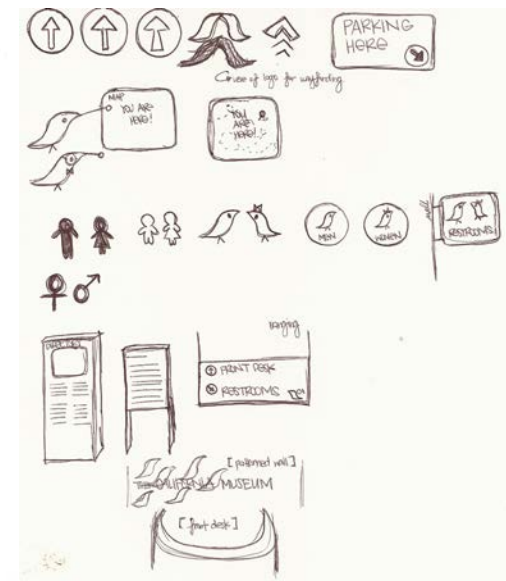 PARKING
HERE
use of logo for wayfinding
MAP
YOU ARE
HERE!
YOU
ARE
HERE!
MEN
WOMEN
wall
RESTROOMS
DIRECTORY
hanging
FRONT DESK
RESTROOMS
[patterned wall]
CALIFORNIA MUSEUM
[front desk]